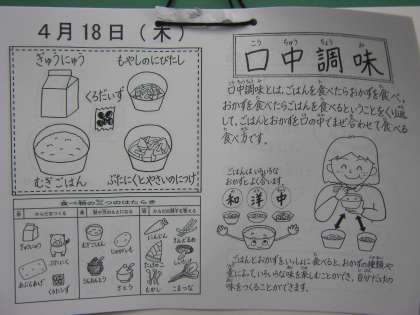 4月18日(木)
ぎゅうにゅう
もやしのにびたし
くろだいず
むぎごはん
ぶたにくとやさいのにつけ
食べ物の三つのはたらき
ぎゅうにゅう
ぶたにく
くろだいず
むぎごはん
さとう
にんじん
たけのこ
もやし
こまつな
こう ちゅう ちょう み
口中調味
口中調味とは、ごはんを食べたらおかずを食べ、
おかずを食べたらごはんを食べるということをくり返
して、ごはんとおかずを口の中でまぜ合わせて食べる
食べ方です。
ごはんはいろいろな
おかずとよく合います。
和 洋 中
ごはんとおかずをいっしょに食べると、おかずの種類や
量によって、いろいろな味を楽しむことができ、自分だけの
味をつくることができます。